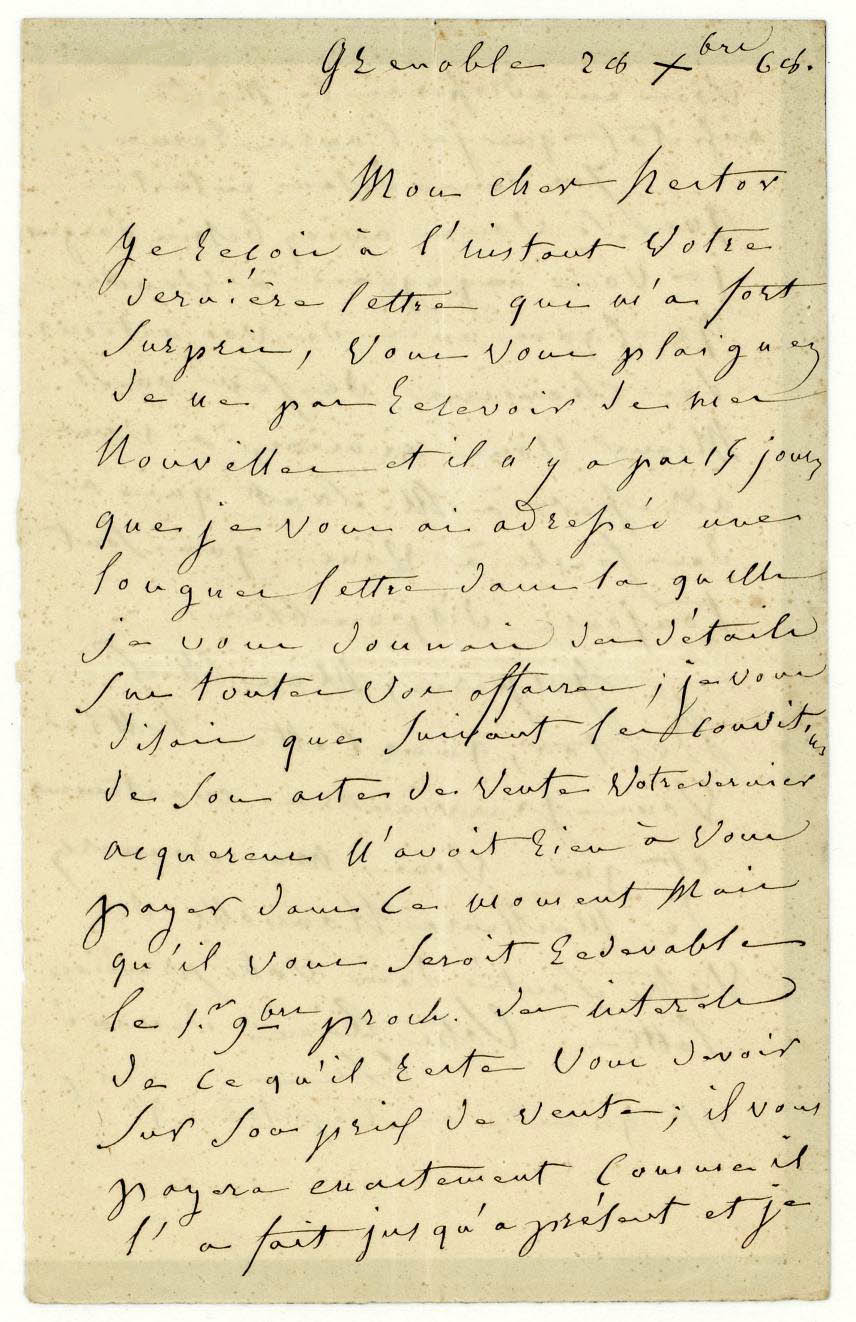 Grenoble 28 Xbre 68.
Mon cher hector
Je reçois à l'instant votre
dernière lettre qui m'a fort
surpris, vous vous plaignez
de ne pas recevoir de mes
nouvelles et il n'y a pas 15 jours
que je vous ai adressée une
longue lettre dans la quelle
je vous donnois des détails
sur toutes vos affaires ; je vous
disois que suivant les condit.ns
de son acte de vente votre dernier
acquereur n'avoit rien à vous
payer dans ce moment mais
qu'il vous seroit redevable
le 1.er 9bre proch. des interets
de ce qu'il reste vous devoir
sur son prix de vente ; il vous
payera exactement comme il
l'a fait jusqu'à présent et je